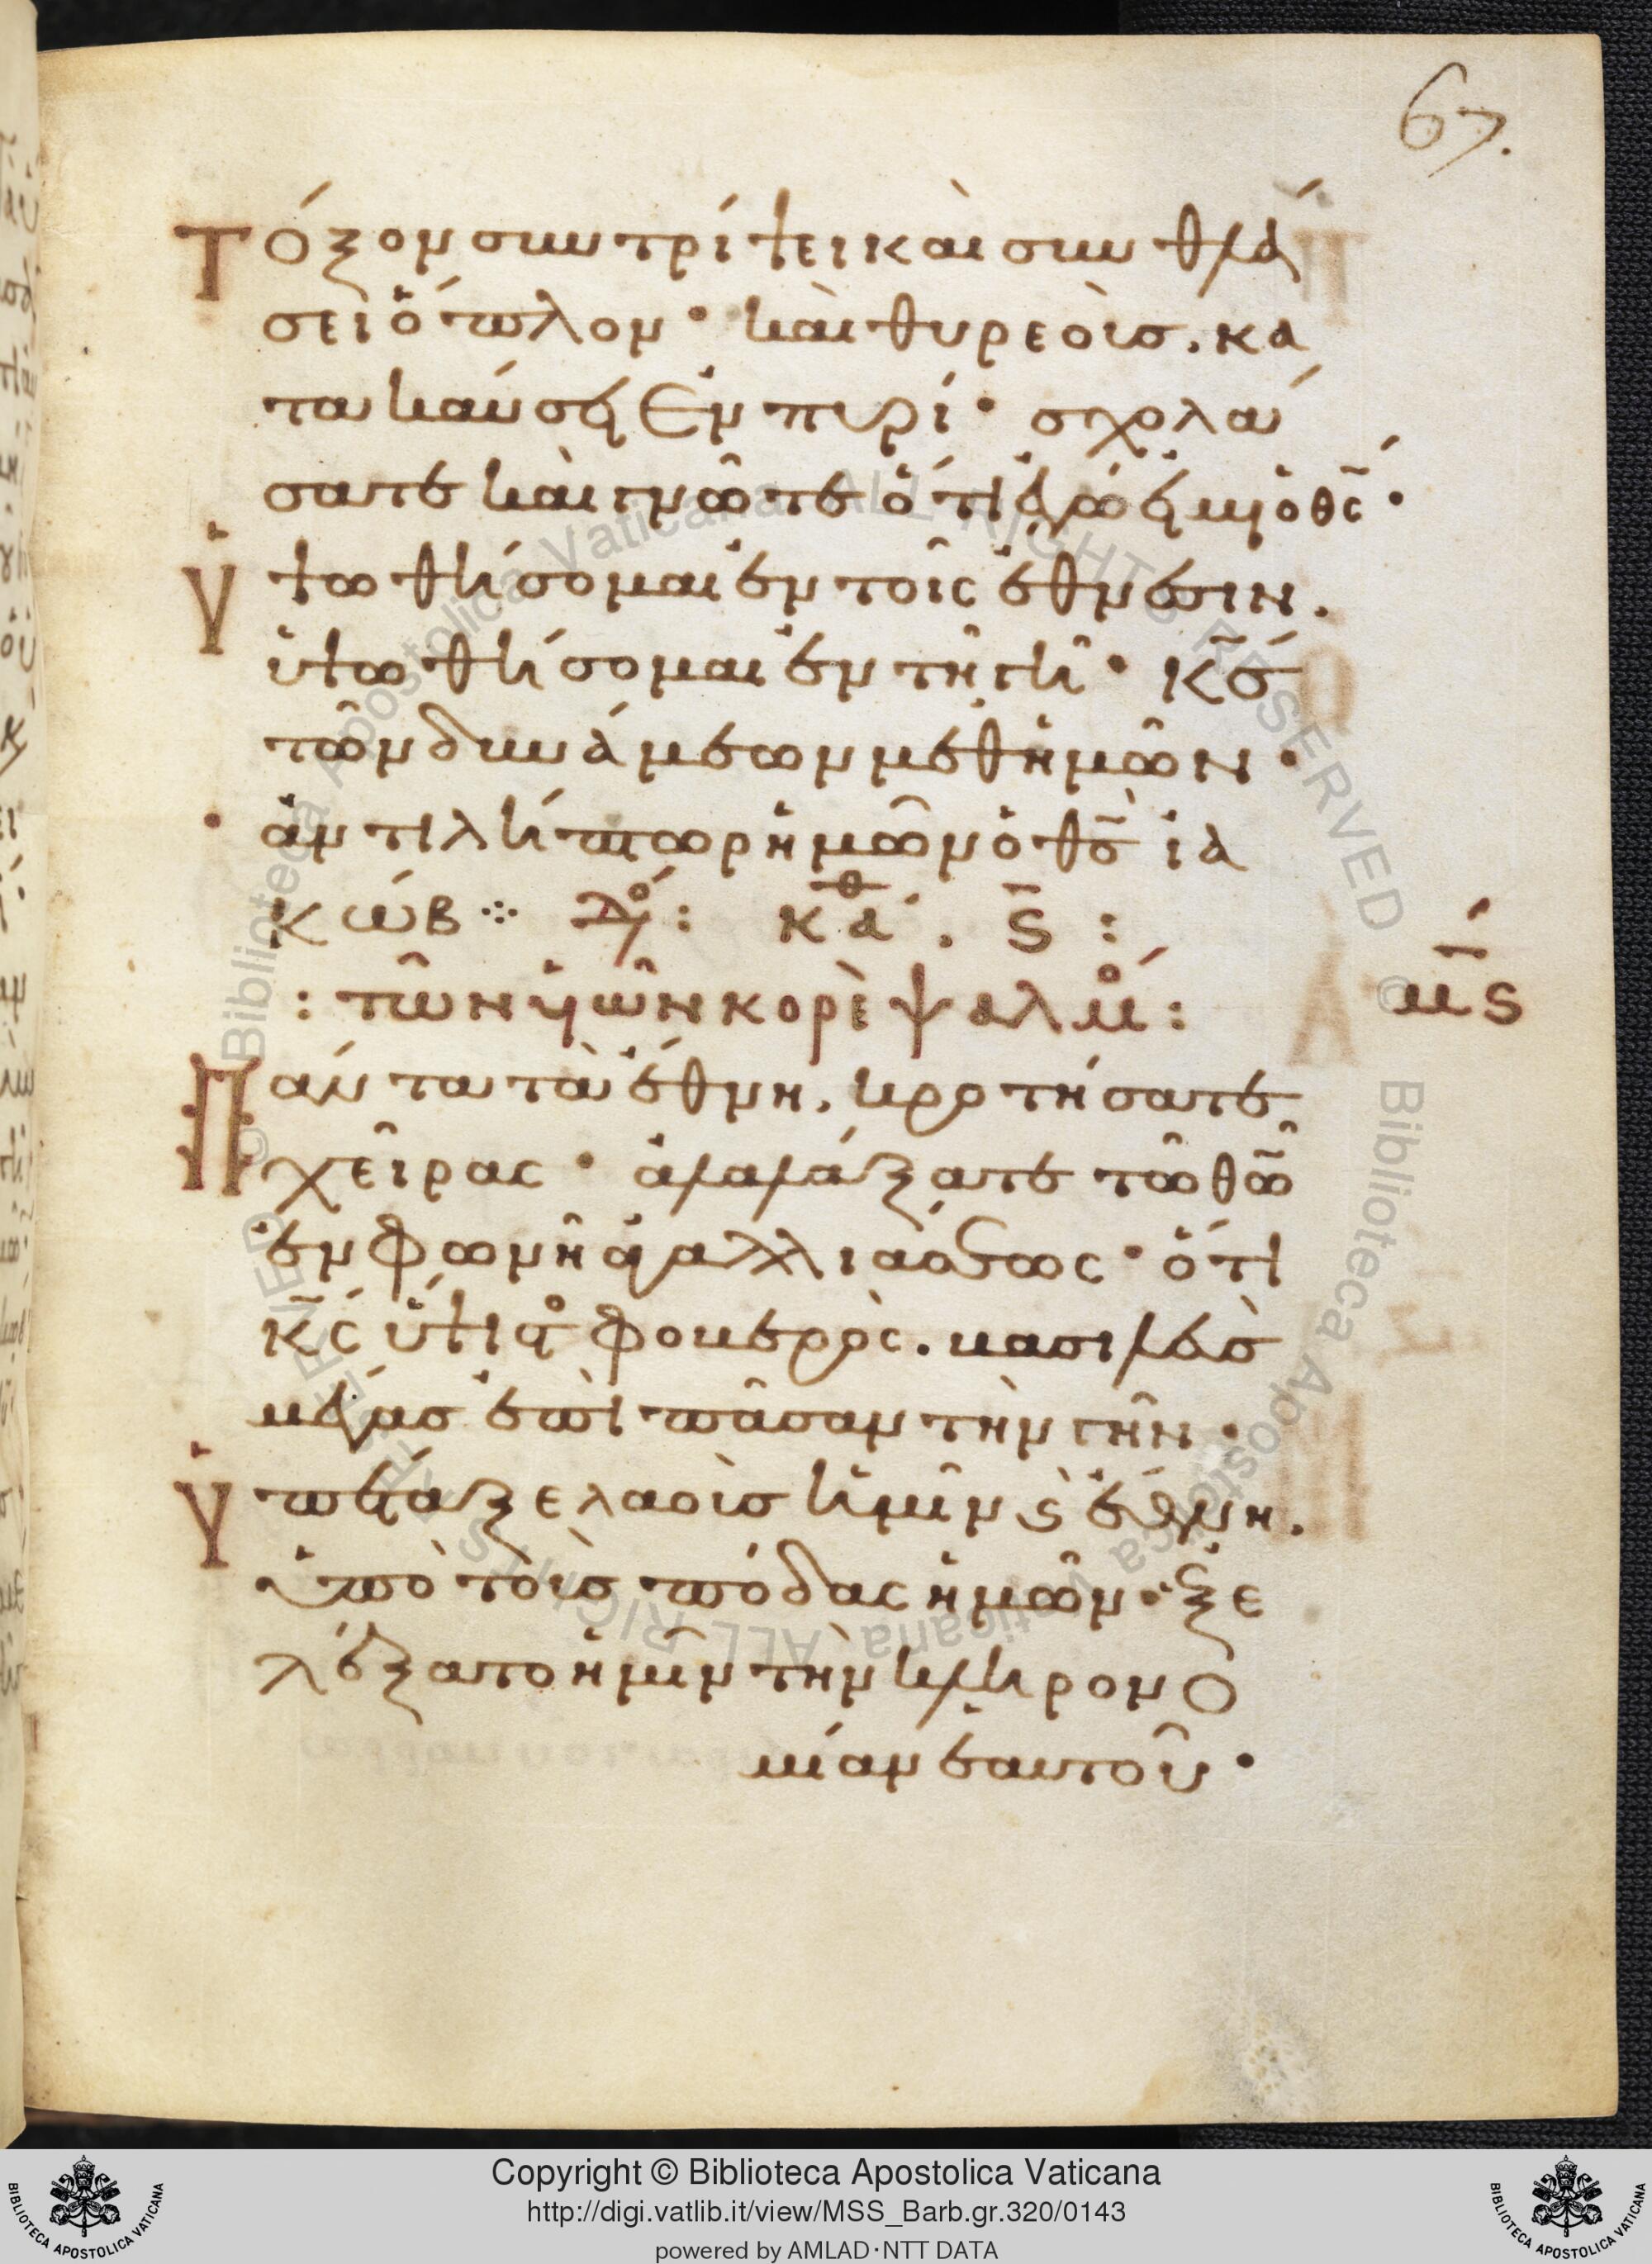 67.
Τόξον συντρίψει καὶ συνθλά
σει ὅπλον· καὶ θυρεοὺσ. κα
τακαύσει Ἐν πυρί· σχολά
σατε καὶ γνῶτε ὅτι ἐγώ εἰμι ὁ θ̅ς̅·
Ὑψωθήσομαι ἐν τοῖς ἔθνεσιν.
ὑψωθήσομαι ἐν τῇ γῇ· κ̅σ̅
τῶν δυνάμεων μεθ ἡμῶν·
ἀντιλήπτωρ ἡμῶν ὁ θ̅σ̅ ἰα
κώβ ⁘ : κθα. ς̅ :
: τῶν υἱῶν κορὲ ψαλμὸ :
μ̅ς̅
Πάντα τὰ ἔθνη. κροτήσατε
χεῖρας· ἀλαλάξατε τῶ θ̅ω̅
ἐν φωνῇ ἀγαλλιάσεως· ὅτι
κ̅ς̅ ὕψιστος φοβερὸς. βασιλεὺσ
μέγασ ἐπὶ πᾶσαν τὴν γῆν·
Ὑπέταξε λαοὺσ ἡμῖν ϛ ἔθνη.
ὑπὸ τοὺσ πόδας ἡμῶν· ἐξε
λέξατο ἡμῖν τὴν κληρονο
μίαν ἑαυτοῦ·
Copyright © Biblioteca Apostolica Vaticana
http://digi.vatlib.it/view/MSS_Barb.gr.320/0143
powered by AMLAD·NTT DATA
BIBLIOTECA APOSTOLICA VATICANA
BIBLIOTECA APOSTOLICA VATICANA